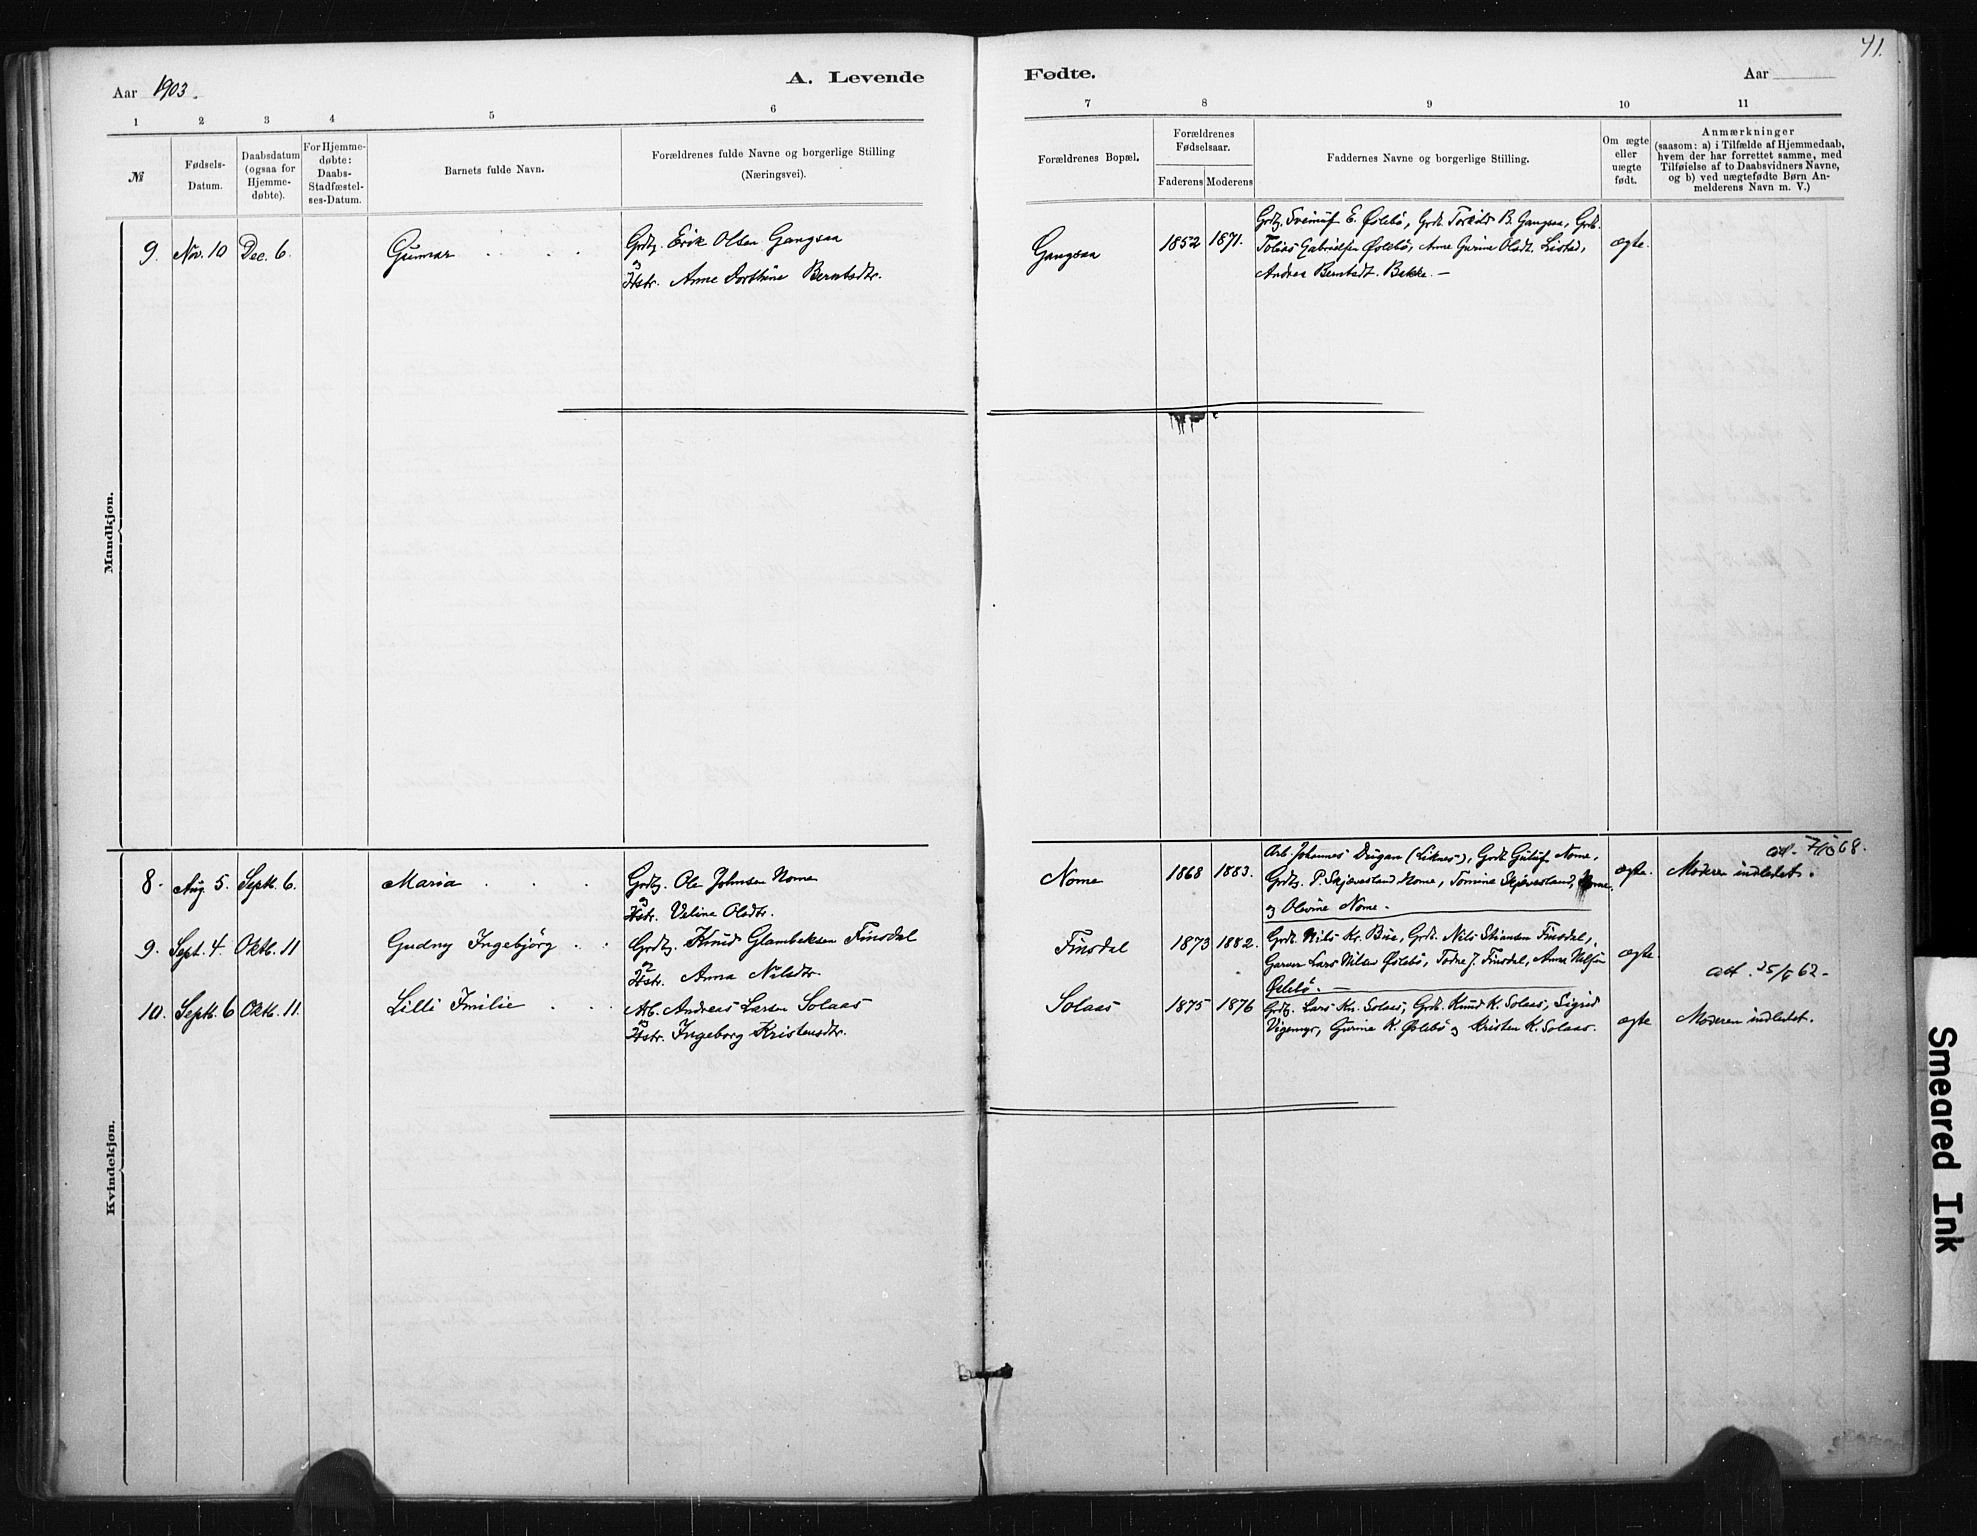 Aar 1903.
A. Levende
Fødte.
Aar
41.
1 2 3 4 5 6 7 8 9 10 11
№
Fødsels-
Datum.
Daabsdatum
(ogsaa for
Hjemme-
døbte).
For Hjemme-
døbte:
Daabs-
Stadfæstel-
ses-Datum.
Barnets fulde Navn.
Forældrenes fulde Navne og borgerlige Stilling
(Næringsvei).
Forældrenes Bopæl.
Forældrenes
Fødselsaar.
Faderens Moderens
Faddernes Navne og borgerlige Stilling.
Om ægte
eller
uægte
født.
Anmærkninger
(saasom: a) i Tilfælde af Hjemmedaab,
hvem der har forrettet samme, med
Tilføielse af to Daabsvidners Navne,
og b) ved uægtefødte Børn An-
melderens Navn m. V.)
Mandkjøn.
9. Nov. 10 Dec. 6. Gunnar
Grdbr. Erik Olsen Gangsaa
og
Hstr. Anne Dorthine Berntsdtr.
Gangsaa 1852 1871.
E. Øslebø, Grdb. B. Gangsaa, Grdb.
Tobias Gabrielsen Øslebø, Anne Gurine Olsdt.
Andrea Berntsdt. Bakke. —
ægte.
Kvindekjøn.
8. Aug. 5. Septb. 6. Maria
Grdbr. Ole Johnsen Nome
og
Hstr. Veline Olsdtr.
Nome 1868 1883.
Arb. Johannes (Liknes), Grdb. Nome,
Grdbr. P. Skjævesland Nome, Tomine Skjævesland, Nome
og Olevine Nome.
ægte. Moderen indledet.
9. Sept. 4. Oktb. 11 Gudny Ingebjørg
Grdbr. Knud Glambeksen Finsdal
og
Hstr. Anna Nilsdtr.
Finsdal 1873 1882.
Grdb. Nils Kr. Bue, Grdb. Nils Finsdal,
Garver Lars Nilsen Øslebø, Todne J. Finsdal, Anne
Øslebø. —
ægte.
att. 25/6 62 –
10. Septb. 6 Oktb. 11. Lilli Emilie
Arb. Andreas Larsen Solaas
og
Hstr. Ingeborg Kristensdtr.
Solaas 1875 1876
Grdbr. Lars Kn. Solaas, Grdb. Knud K. Solaas, Sigrid
Vigemyr, Gurine K. Øslebø og Kristen K. Solaas.
ægte Moderen indledet.
Smeared Ink